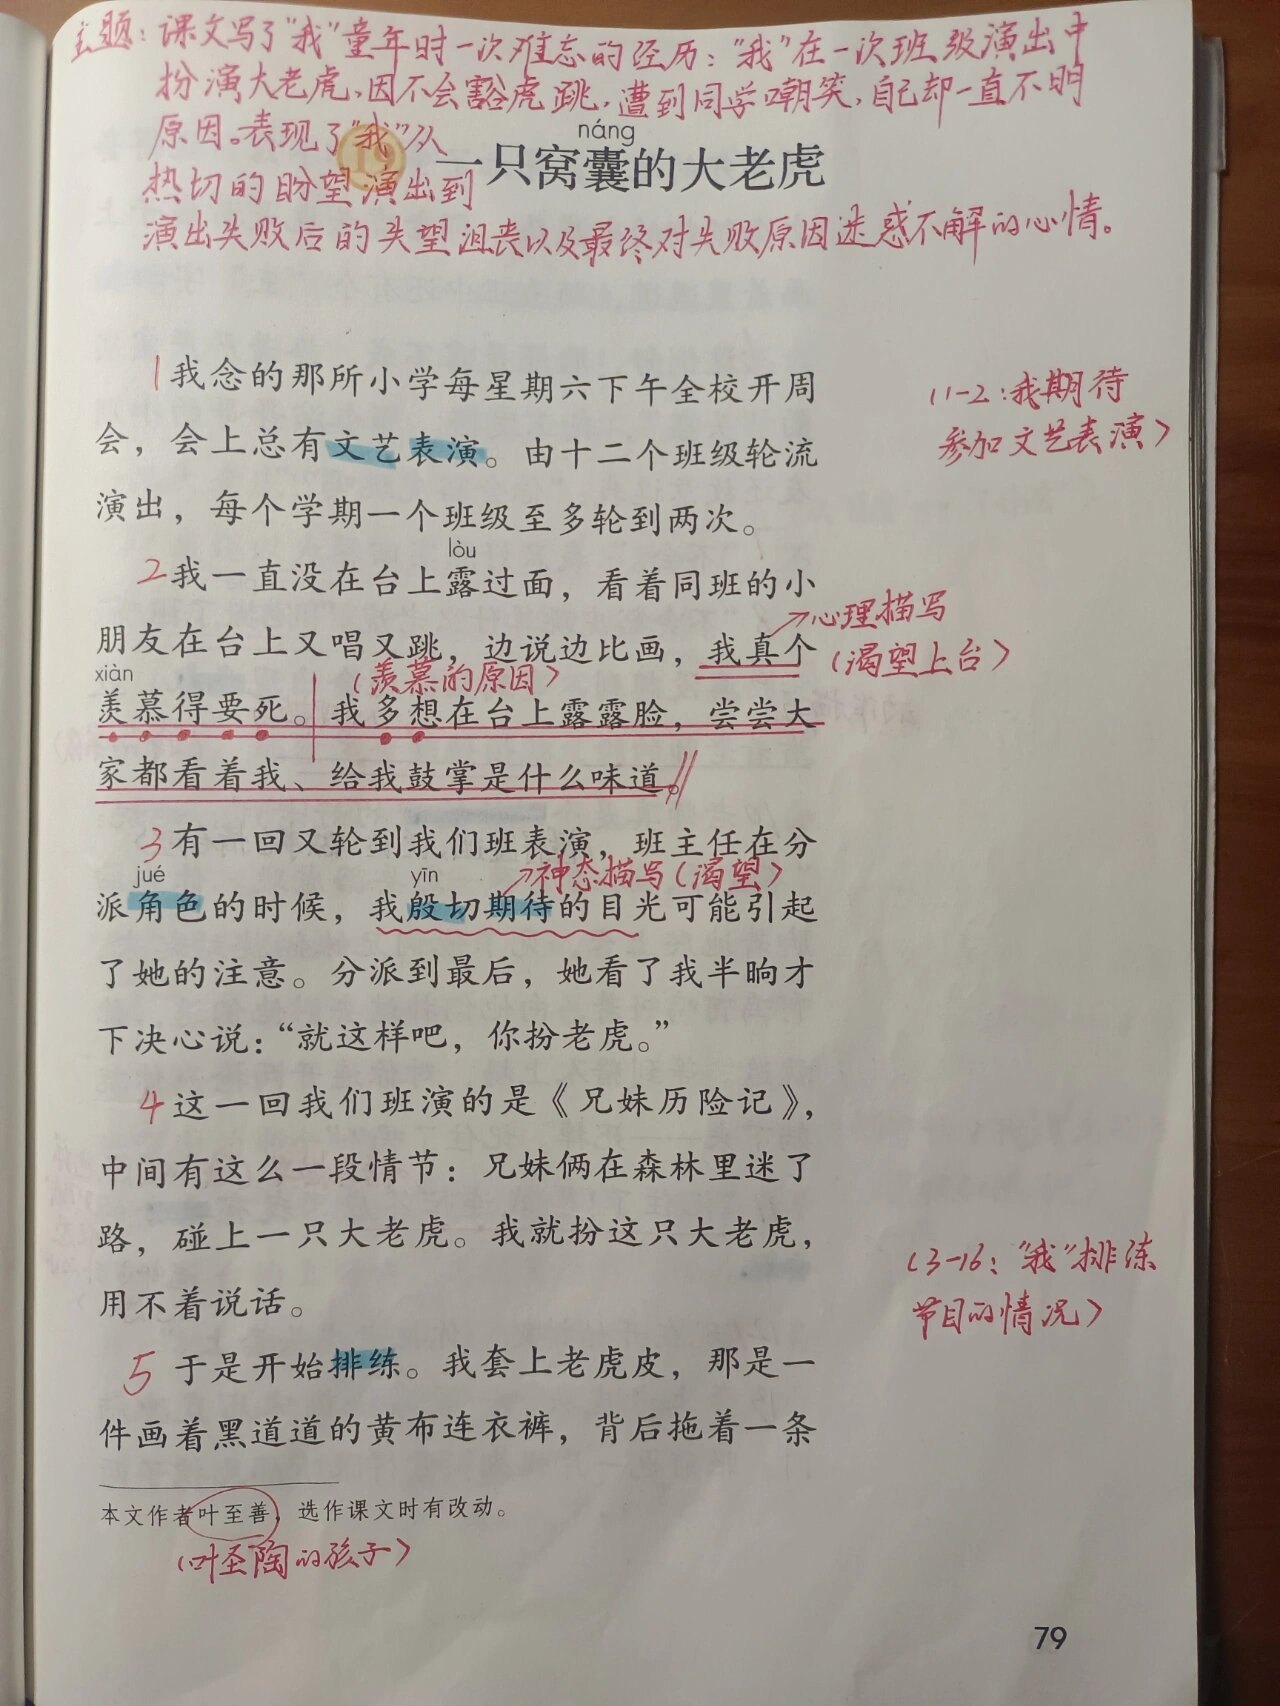 主题：课文写了"我"童年时一次难忘的经历："我"在一次班级演出中
扮演大老虎，因不会豁虎跳，遭到同学嘲笑，自己却一直不明
原因。表现了"我"从
热切的盼望演出到
演出失败后的失望沮丧以及最终对失败原因迷惑不解的心情。
náng
19 一只窝囊的大老虎
1 我念的那所小学每星期六下午全校开周
会，会上总有文艺表演。由十二个班级轮流
演出，每个学期一个班级至多轮到两次。
(1-2：我期待
参加文艺表演)
lòu
2 我一直没在台上露过面，看着同班的小
朋友在台上又唱又跳，边说边比画，我真个
心理描写
(渴望上台)
xiàn
(羡慕的原因)
羡慕得要死。我多想在台上露露脸，尝尝大
家都看着我、给我鼓掌是什么味道。
3 有一回又轮到我们班表演，班主任在分
jué yīn
神态描写(渴望)
派角色的时候，我殷切期待的目光可能引起
了她的注意。分派到最后，她看了我半晌才
下决心说：“就这样吧，你扮老虎。”
4 这一回我们班演的是《兄妹历险记》，
中间有这么一段情节：兄妹俩在森林里迷了
路，碰上一只大老虎。我就扮这只大老虎，
用不着说话。
(3-16："我"排练
节目的情况)
5 于是开始排练。我套上老虎皮，那是一
件画着黑道道的黄布连衣裤，背后拖着一条
本文作者叶至善，选作课文时有改动。
(叶圣陶的孩子)
79